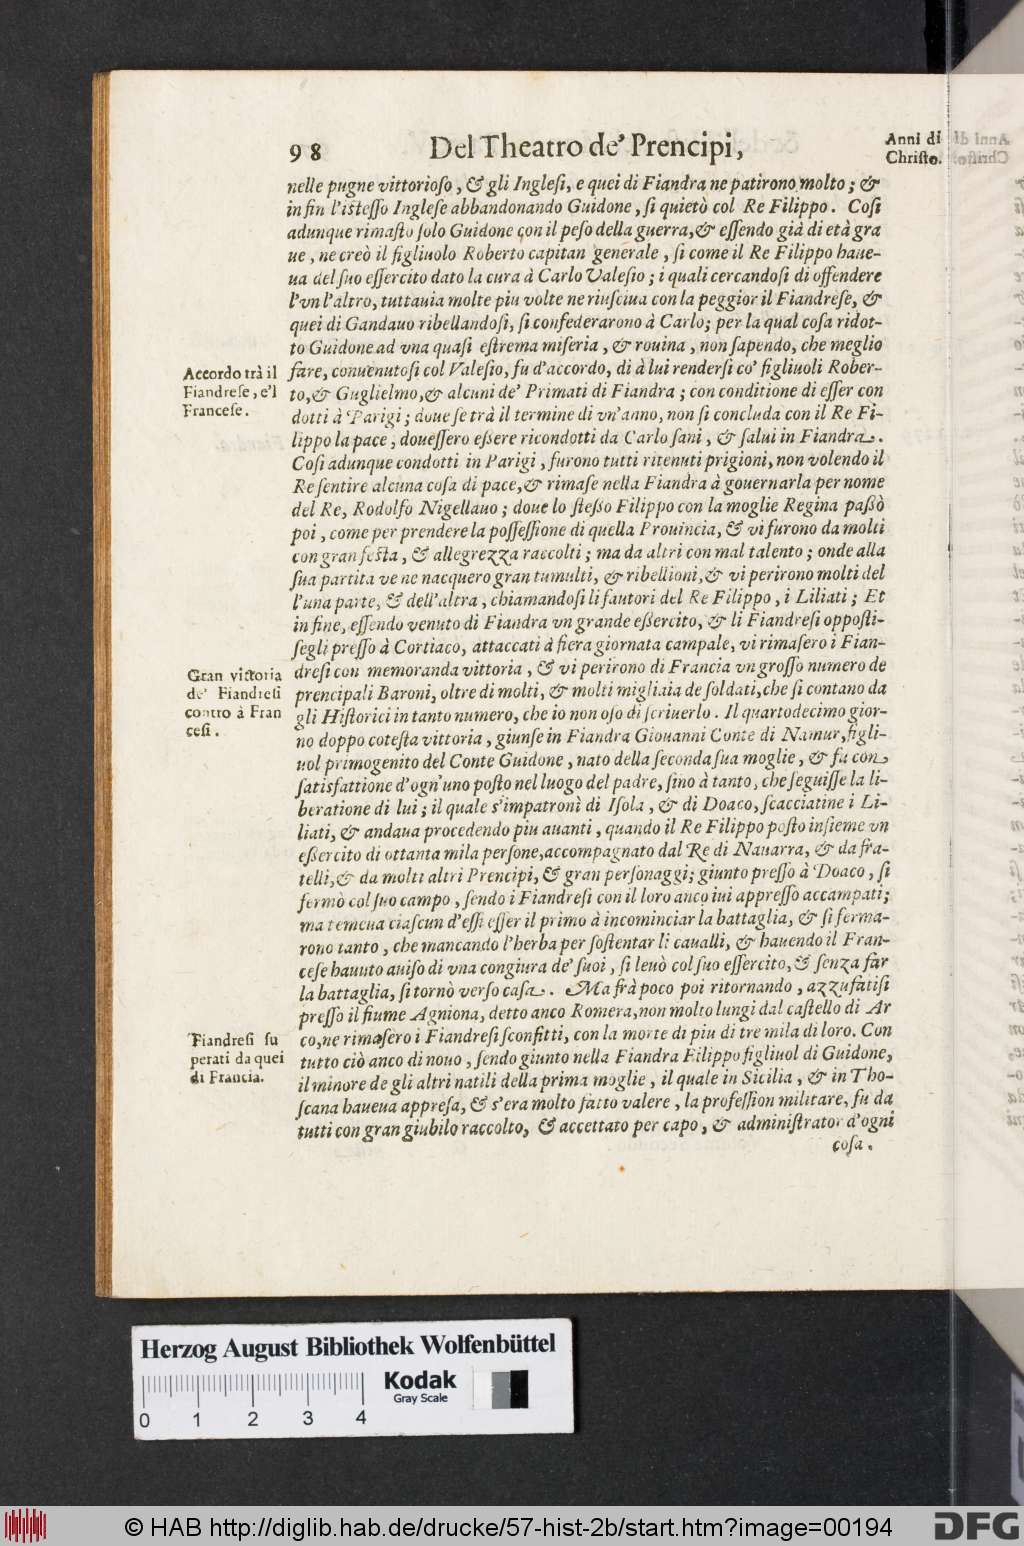 98 Del Theatro de' Prencipi, Anni di
Christo.
nelle pugne vittorioso, & gli Inglesi, e quei di Fiandra ne patirono molto; &
in fin l'istesso Inglese abbandonando Guidone, si quietò col Re Filippo. Cosi
adunque rimasto solo Guidone con il peso della guerra, & essendo già di età gra
ue, ne creò il figliuolo Roberto capitan generale, si come il Re Filippo haue-
ua del suo essercito dato la cura à Carlo Valesio; i quali cercandosi di offendere
l'vn l'altro, tuttauia molte piu volte ne riusciua con la peggior il Fiandrese, &
quei di Gandauo ribellandosi, si confederarono à Carlo; per la qual cosa ridot-
to Guidone ad vna quasi estrema miseria, & rouina, non sapendo, che meglio
Accordo trà il
Fiandrese, e'l
Francese.
fare, conuenutosi col Valesio, fu d'accordo, di à lui rendersi co' figliuoli Rober-
to, & Guglielmo, & alcuni de' Primati di Fiandra; con conditione di esser con
dotti à Parigi; doue se trà il termine di vn'anno, non si concluda con il Re Fi-
lippo la pace, douessero essere ricondotti da Carlo sani, & salui in Fiandra.
Cosi adunque condotti in Parigi, furono tutti ritenuti prigioni, non volendo il
Re sentire alcuna cosa di pace, & rimase nella Fiandra à gouernarla per nome
del Re, Rodolfo Nigellauo; doue lo stesso Filippo con la moglie Regina passò
poi, come per prendere la possessione di quella Prouincia, & vi furono da molti
con gran festa, & allegrezza raccolti; ma da altri con mal talento; onde alla
sua partita ve ne nacquero gran tumulti, & ribellioni, & vi perirono molti del
l'una parte, & dell'altra, chiamandosi li fautori del Re Filippo, i Liliati; Et
in fine, essendo venuto di Fiandra vn grande essercito, & li Fiandresi opposti-
segli presso à Cortiaco, attaccati à fiera giornata campale, vi rimasero i Fian-
Gran victoria
de' Fiandresi
contro à Fran
cesi.
dresi con memoranda vittoria, & vi perirono di Francia vn grosso numero de
prencipali Baroni, oltre di molti, & molti migliaia de soldati, che si contano da
gli Historici in tanto numero, che io non oso di scriuerlo. Il quartodecimo gior-
no doppo cotesta vittoria, giunse in Fiandra Giouanni Conte di Namur, figli-
uol primogenito del Conte Guidone, nato della seconda sua moglie, & fu con
satisfattione d'ogn'uno posto nel luogo del padre, sino à tanto, che seguisse la li-
beratione di lui; il quale s'impatronì di Isola, & di Doaco, scacciatine i Li-
liati, & andaua procedendo piu auanti, quando il Re Filippo posto insieme vn
essercito di ottanta mila persone, accompagnato dal Re di Nauarra, & da fra-
telli, & da molti altri Prencipi, & gran personaggi; giunto presso à Doaco, si
fermò col suo campo, sendo i Fiandresi con il loro anco iui appresso accampati;
ma temeua ciascun d'essi esser il primo à incominciar la battaglia, & si ferma-
rono tanto, che mancando l'herba per sostentar li caualli, & hauendo il Fran-
cese hauuto auiso di vna congiura de' suoi, si leuò col suo essercito, & senza far
la battaglia, si tornò verso casa. Ma frà poco poi ritornando, azzufatisi
presso il fiume Agniona, detto anco Romera, non molto lungi dal castello di Ar
Fiandresi su
perati da quei
di Francia.
co, ne rimasero i Fiandresi sconfitti, con la morte di piu di tre mila di loro. Con
tutto ciò anco di nouo, sendo giunto nella Fiandra Filippo figliuol di Guidone,
il minore de gli altri natili della prima moglie, il quale in Sicilia, & in Tho-
scana haueua appresa, & s'era molto fatto valere, la profession militare, fu da
tutti con gran giubilo raccolto, & accettato per capo, & administrator d'ogni
cosa.
Herzog August Bibliothek Wolfenbüttel
Kodak
Gray Scale
0 1 2 3 4
© HAB http://diglib.hab.de/drucke/57-hist-2b/start.htm?image=00194
DFG